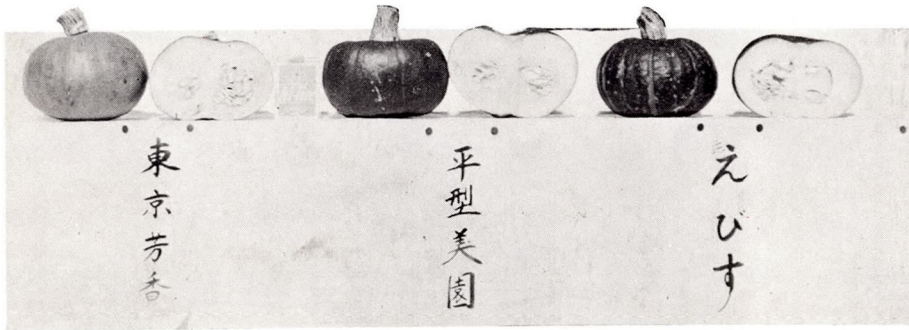 東京芳香
平型美園
えびす